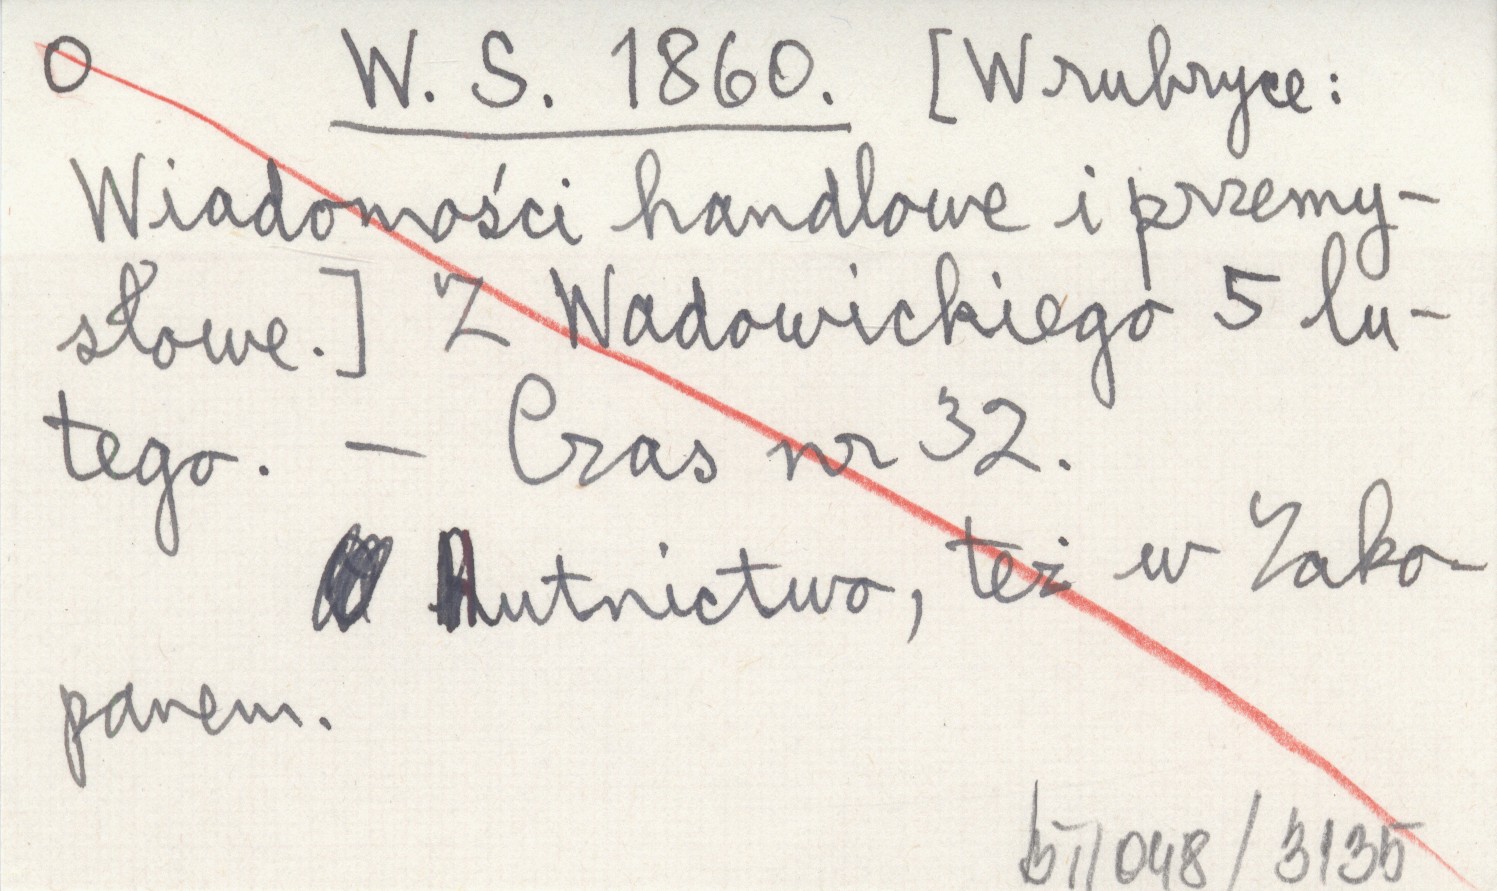 O W. S. 1860. [W rubryce:
Wiadomości handlowe i przemy-
słowe.] Z Wadowickiego 5 lu-
tego. — Czas nr 32.
hutnictwo, też w Zako-
panem.
048 / 3135